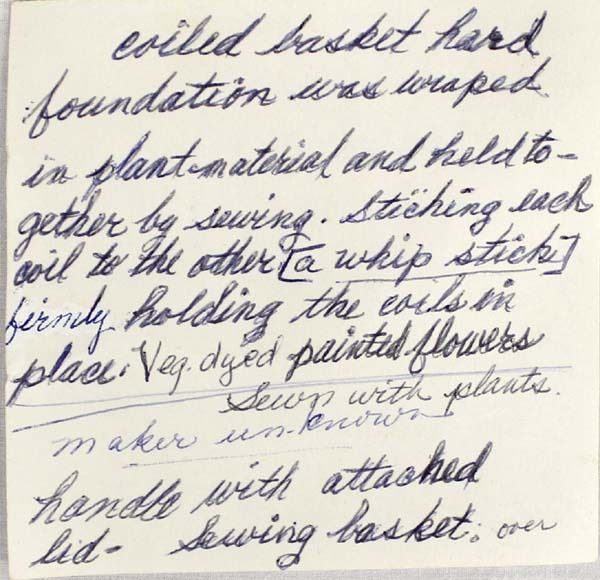 coiled basket hard
foundation was wraped
in plant-material and held to-
gether by sewing. Stiching each
coil to the other [a whip stick]
firmly holding the coils in
place. Veg. dyed painted flowers
Sewn with plants.
maker un-known
handle with attached
lid- Sewing basket. over